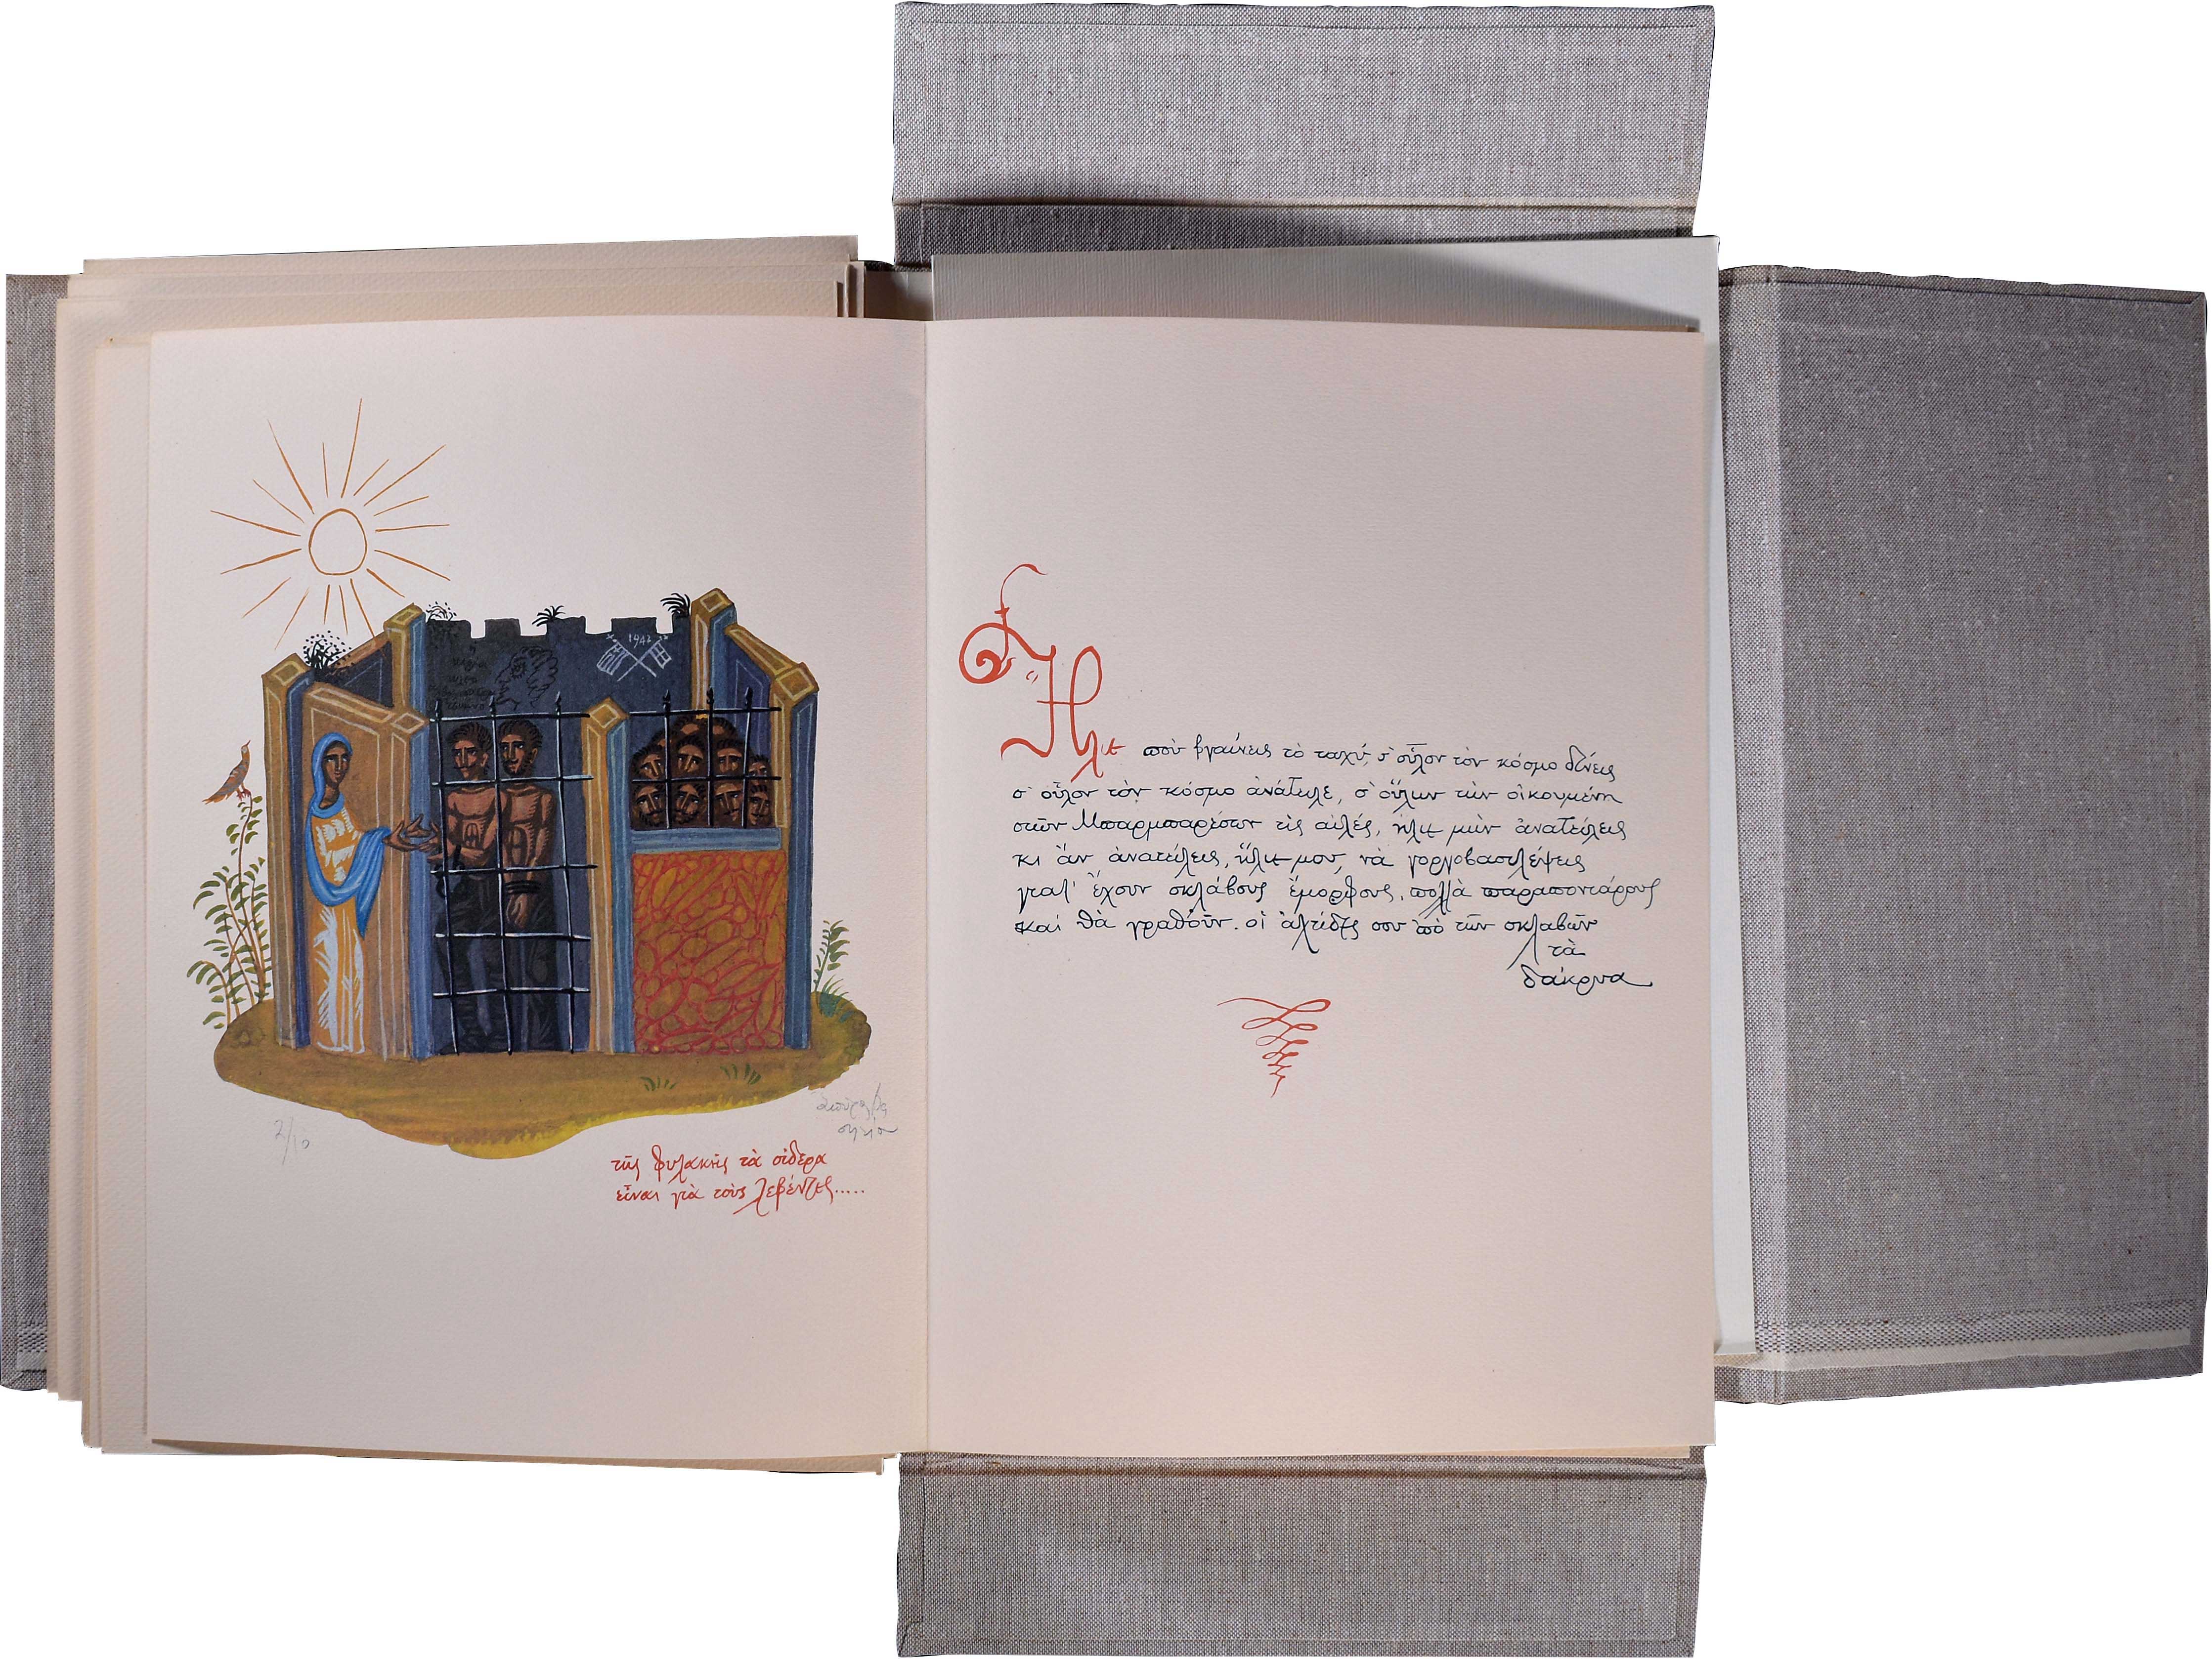 1942
2/10
τῆς φυλακῆς τὰ σίδερα
εἶναι γιὰ τοὺς λεβέντες.....
Ἥλιε ποὺ βγαίνεις τὸ ταχύ, σ' οὗλον τὸν κόσμο δίνεις
σ' οὗλον τὸν κόσμο ἀνάτειλε, σ' οὕλην τὴν οἰκουμένη
στῶν Μπαρμπαρέσων τὶς αὐλές, ἥλιε μὴν ἀνατείλεις
κι ἂν ἀνατείλεις, ἥλιε μου, νὰ γοργοβασιλέψεις
γιατ' ἔχουν σκλάβους ἔμορφους, πολλὰ παραπονιάρους
καὶ θὰ γραθοῦν οἱ ἀχτίδες σου ἀπὸ τῶν σκλαβῶν
τὰ
δάκρυα